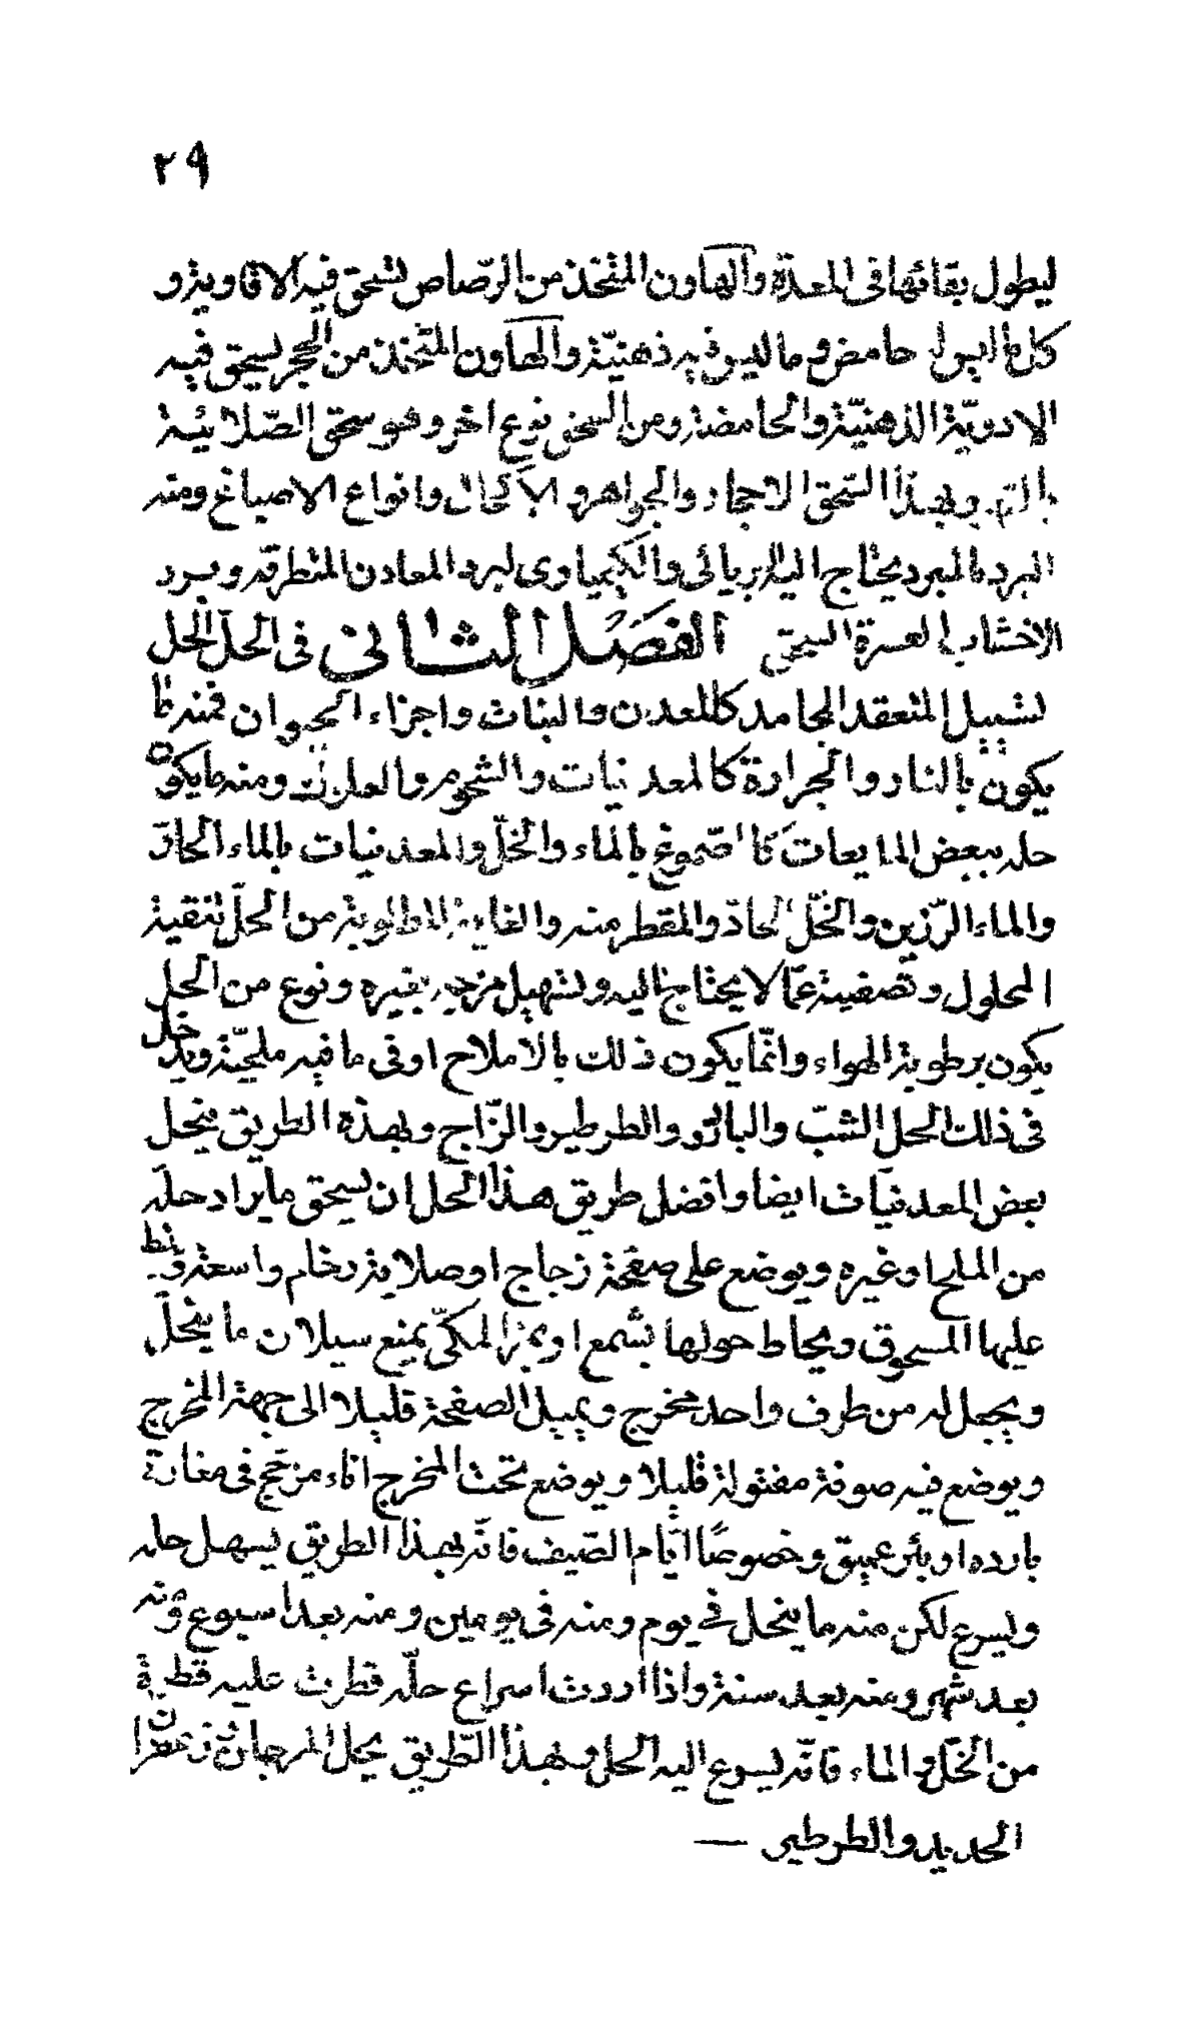 ٢٩
ليطول بقائها فى المعدة والهاون المتخذ من الرّصاص لسحق فيه الافاويه و
كل ما ليس حامض و ما ليس فيه ذهنيّة والهاون المتخذ من الحجر يسحق فيه
الادويّة الذهنيّة والحامضة ومن السحق نوع اخر وهو سحق الصّلائية
وبهذا السّحق الاحجار والجواهر و الاكحال وانواع الاصباغ ومنه
البرد بالمبرد يحتاج اليه الرياني والكيمياوى لبرد المعادن المنطرقه وبرد
الاخشاب لعسرة السحق الفصل الثانى فى الحلّ الحل
لسييل المنعقد الجامد كالمعدن والنبات واجزاء الحيوان فمنه ما
يكون بالنار والحرارة كالمعدنيات والشحوم والعلك ومنه ما يكون
حله ببعض المايعات كالصموغ بالماء والخلّ والمعدنيات بالماء الحادّ
والماء الرّزين والخلّ الحادّ والمقطر منه والغاية المطلوبة من الحلّ لتنقية
المحلول وتصفية عمّا لا يحتاج اليه ولتسهيل مزجه بغيره ونوع من الحل
يكون برطوبة الهواء وانّما يكون ذلك بالاملاح او فى ما فيه ملحيّة ويدخل
فى ذلك الحل الشبّ والبارود والطرطير والزّاج وبهذه الطريق ينحل
بعض المعدنيات ايضا وافضل طريق هذا الحل ان يسحق ما يراد حلّه
من الملح او غيره ويوضع على صفحة زجاج او صلاية رخام واسعة وبسط
عليها المسحوق ويحاط حولها بشمع او بمرّ المكّى يمنع سيلان ما ينحلّ
ويجعل له من طرف واحد مخرج ويميل الصفحة قليلا الى جهة المخرج
ويوضع فيه صوفة مفتولة قليلا ويوضع تحت المخرج اناء مزجج فى مغارة
بارده او بئر عميق وخصوصًا ايّام الصّيف فانّه بهذا الطريق يسهل حله
ويسرع لكن منه ما ينحل فى يوم ومنه فى يومين ومنه بعد اسبوع ومنه
بعد شهر ومنه بعد سنة واذا اردت اسراع حلّه قطرت عليه قطرة
من الخلّ والماء فانّه ليسرع اليه الحل وبهذا الطّريق يحل المرجان زعفران
الحديد والطرطير —